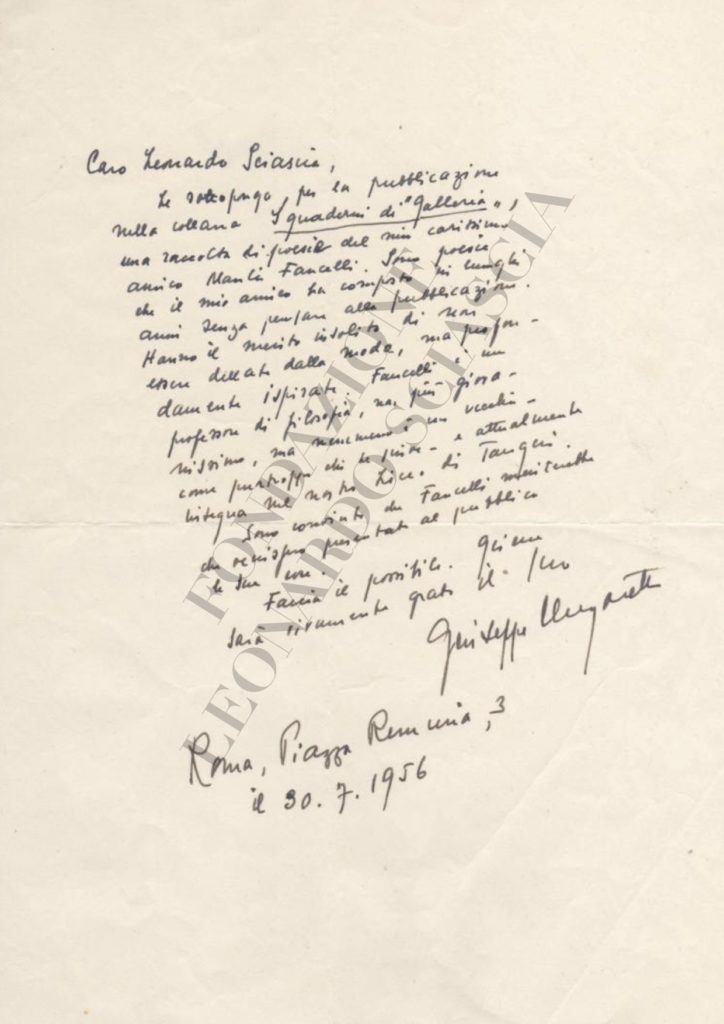 Caro Leonardo Sciascia,
Le sottopongo, per la pubblicazione
nella collana I quaderni di "Galleria",
una raccolta di poesie del mio carissimo
amico Manlio Fancelli. Sono poesie
che il mio amico ha composto in lunghi
anni senza pensare alla pubblicazione.
Hanno il merito insolito di non
essere dettate dalla moda, ma profon-
damente ispirate. Fancelli è un
professore di filosofia, non più giova-
nissimo, ma nemmeno un vecchio
come purtroppo chi Le scrive - e attualmente
insegna nel nostro Liceo di Tangeri.
Sono convinto che Fancelli meriterebbe
che venissero presentate al pubblico
le sue cose.
Faccia il possibile. Gliene
sarà vivamente grato il Suo
Giuseppe Ungaretti
Roma, Piazza Remuria, 3
il 30.7.1956
FONDAZIONE
LEONARDO SCIASCIA